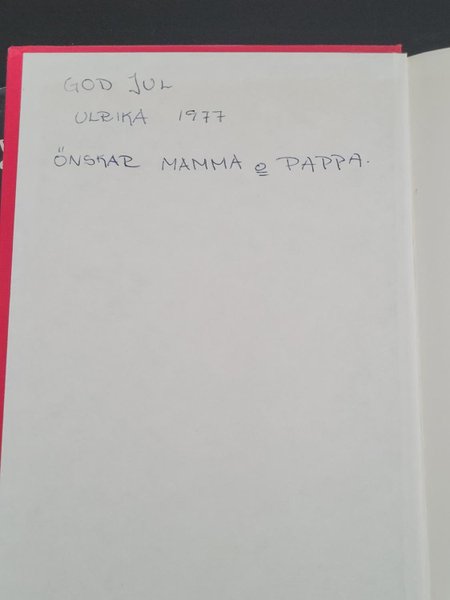 GOD JUL
ULRIKA 1977
ÖNSKAR MAMMA o PAPPA.